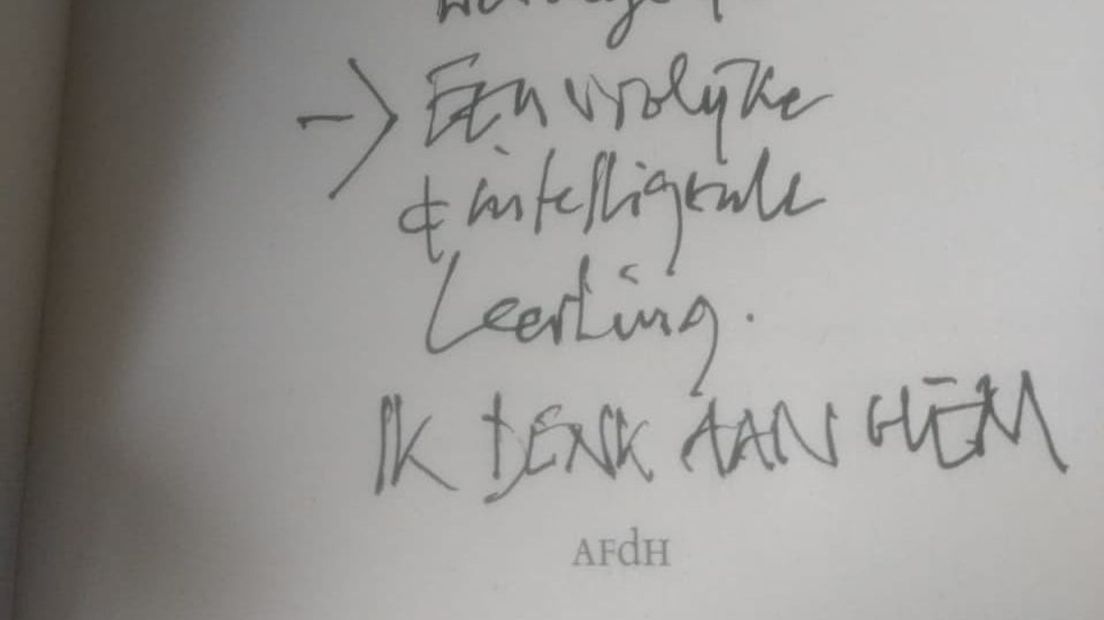 → Een vrolijke
& intelligente
Leerling.
IK DENK AAN HEM
AFdH